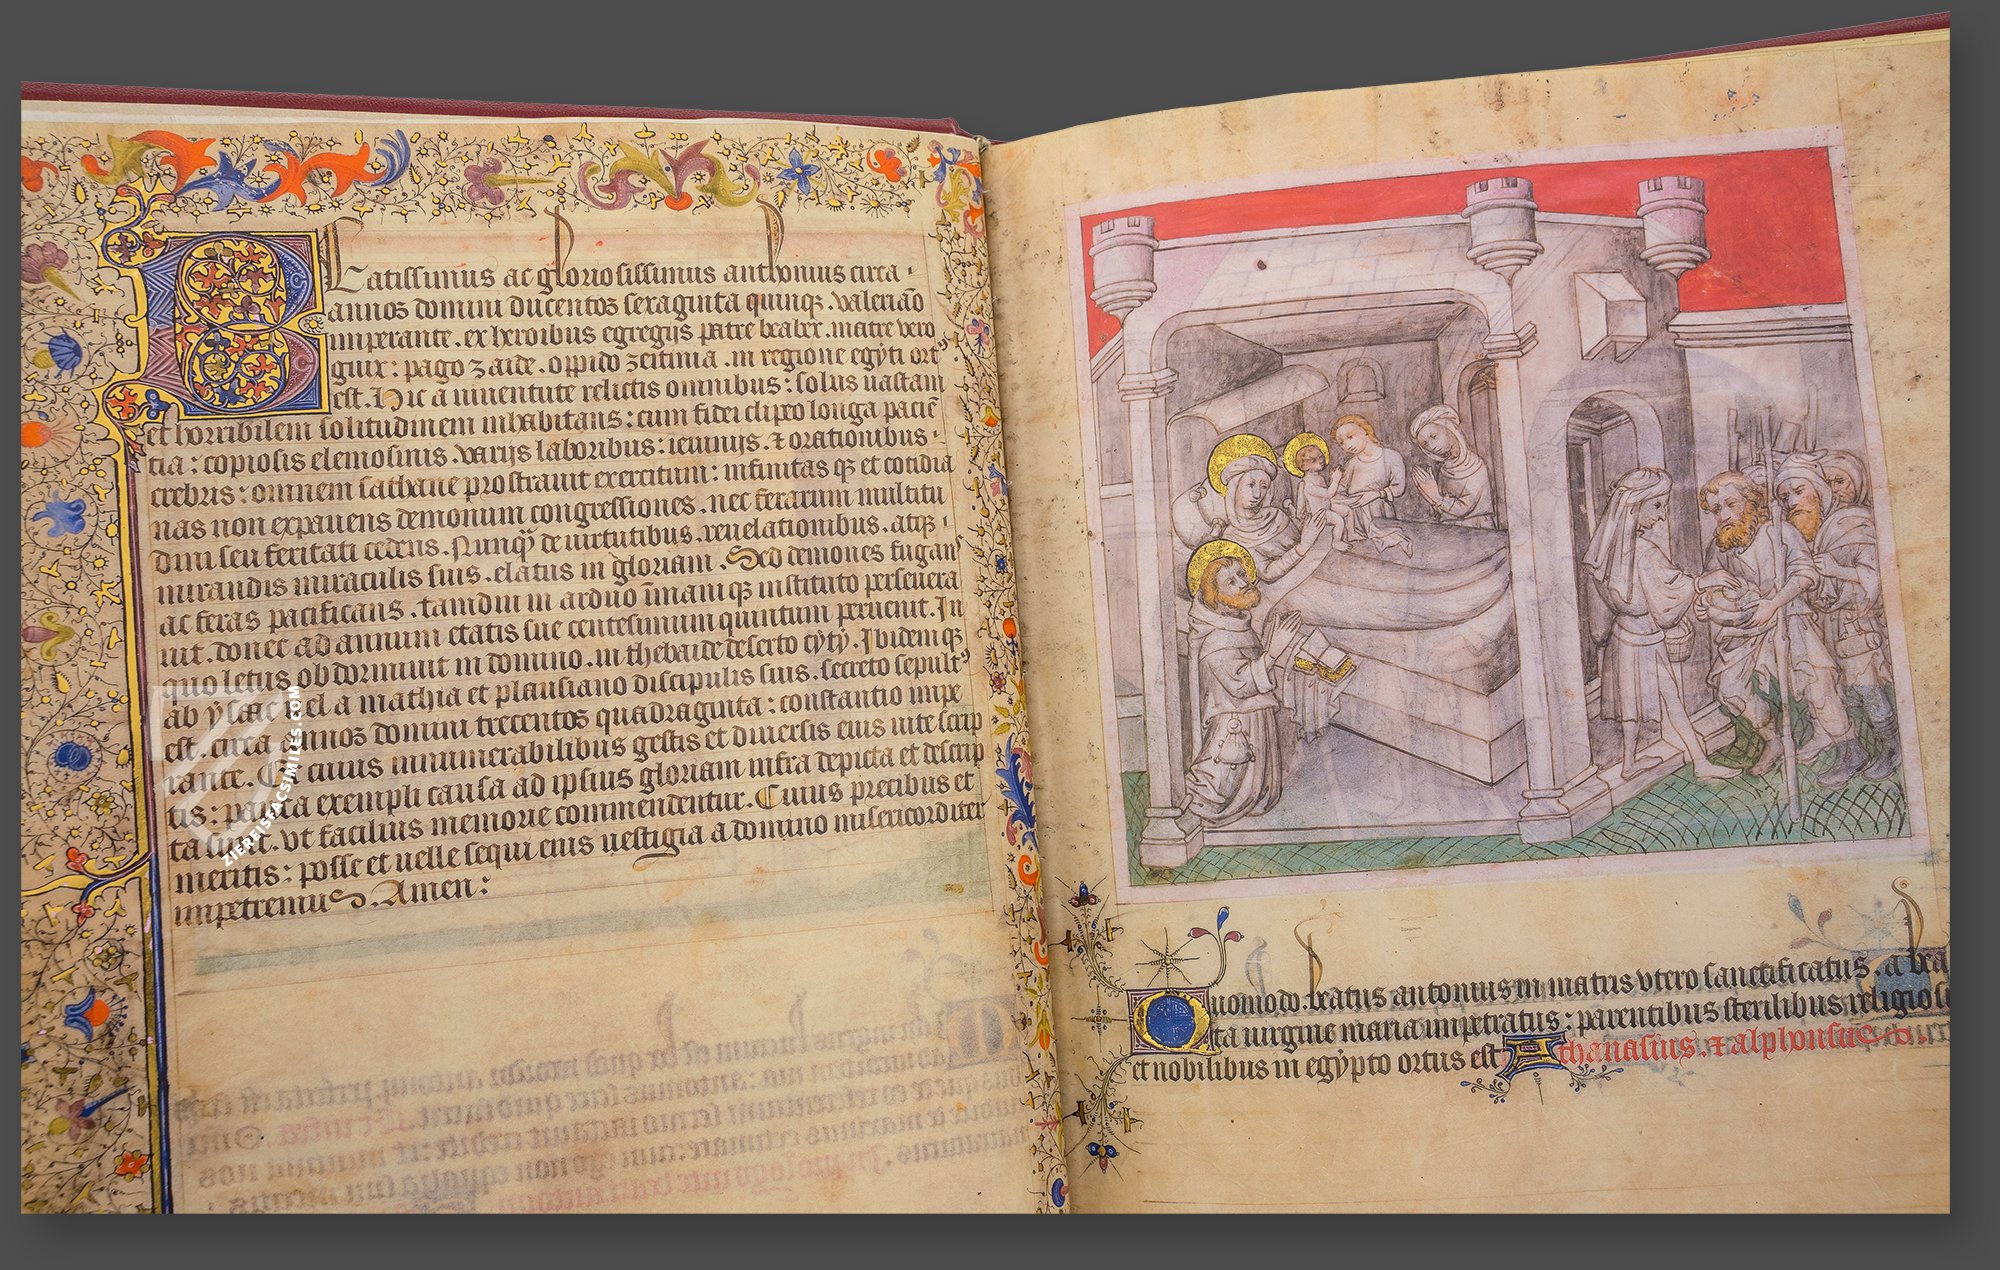 Beatissimus ac gloriosissimus anthonius circa
annos domini ducentos sexaginta quinqꝫ. valeriāo
imperante. ex heroibus egregijs patre beaber. matre vero
giux: pago zaide. oppido zeitinia. in regione egypti ort⁹
est. Hic a iuuentute relictis omnibus: solus uastam
et horribilem solitudinem inhabitans: cum fidei clipeo longa paciē
tia: copiosis elemosinis. varijs laboribus: ieiunijs. ⁊ orationibus
crebris: omnem sathane prostrauit exercitum: infinitas qꝫ et cotidia
nas non expauens demonum congressiones. nec ferarum multitu
dini seu feritati cedens. Nunq̄ȝ de uirtutibus. reuelationibus. atqꝫ
mirandis miraculis suis. elatus in gloriam. Sed demones fugan
ac feras pacificans. tamdiu in arduo
uit. donec ad annum etatis sue centesimum quintum peruenit. In
quo letus obdormiuit in domino. in thebaide deserto
ab el a mathia et plausiano discipulis suis. secreto sepult⁹
est. circa annos domini trecentos quadraginta: constantio impe
rante. Ex cuius innumerabilibus gestis et diuersis eius uite scrip
tis: pauca exempli causa ad ipsius gloriam infra depicta et descrip
ta sunt. vt facilius memorie commendentur. Cuius precibus et
meritis: posse et uelle sequi eius uestigia a domino misericorditer
impetremus. Amen:
ZIEREISFACSIMILES.COM
Quomodo. beatus antonius in matris vtero sanctificatus. a bea
ta uirgine maria impetratus: parentibus sterilibus religiosi
et nobilibus in egypto ortus est Athanasius. ⁊ alphonsus